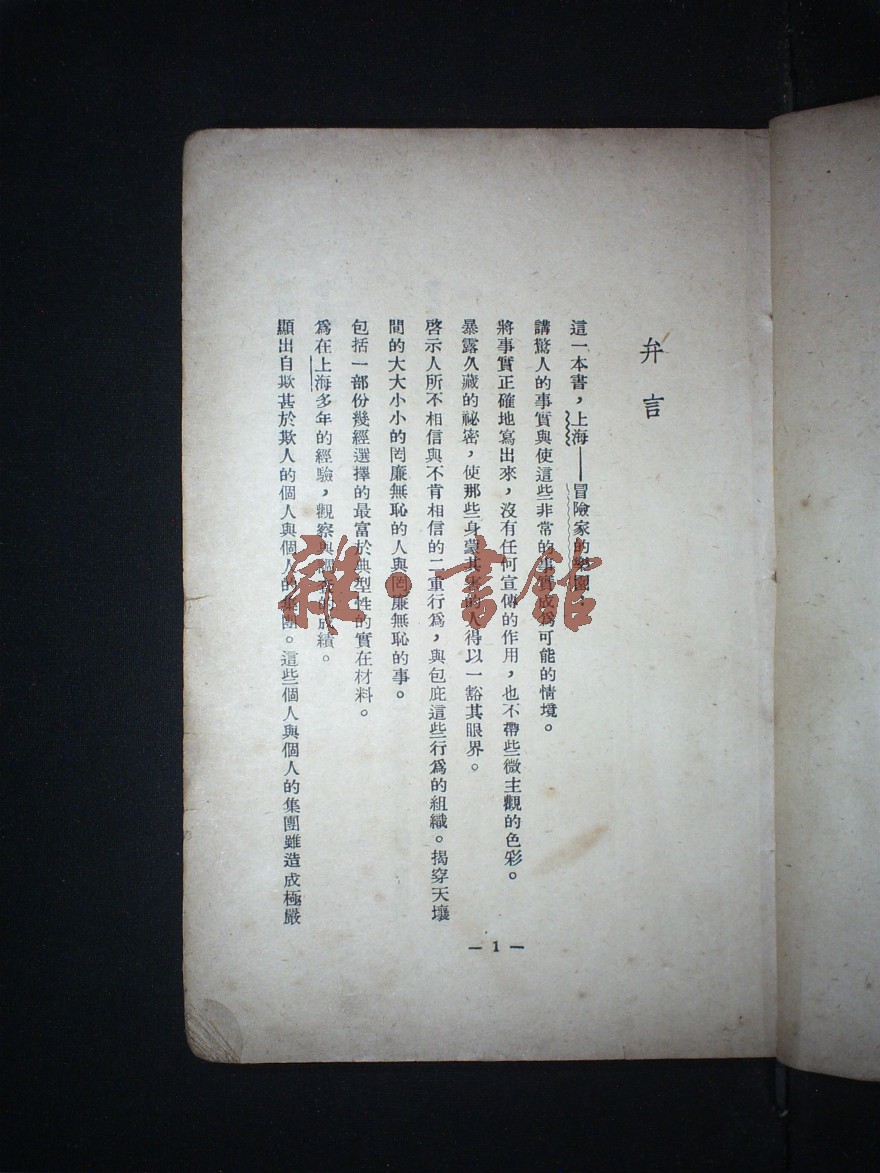 弁言
這一本書，上海——冒險家的樂園：
講驚人的事實與使這些非常的事實成爲可能的情境。
將事實正確地寫出來，沒有任何宣傳的作用，也不帶些微主觀的色彩。
暴露久藏的祕密，使那些身蒙其害的人得以一豁其眼界。
啓示人所不相信與不肯相信的二重行爲，與包庇這些行爲的組織。揭穿天壤
間的大大小小的罔廉無恥的人與罔廉無恥的事。
包括一部份幾經選擇的最富於典型性的實在材料。
爲在上海多年的經驗，觀察與的成績。
顯出自欺甚於欺人的個人與個人的集團。這些個人與個人的集團雖造成極嚴
— 1 —
雜·書館